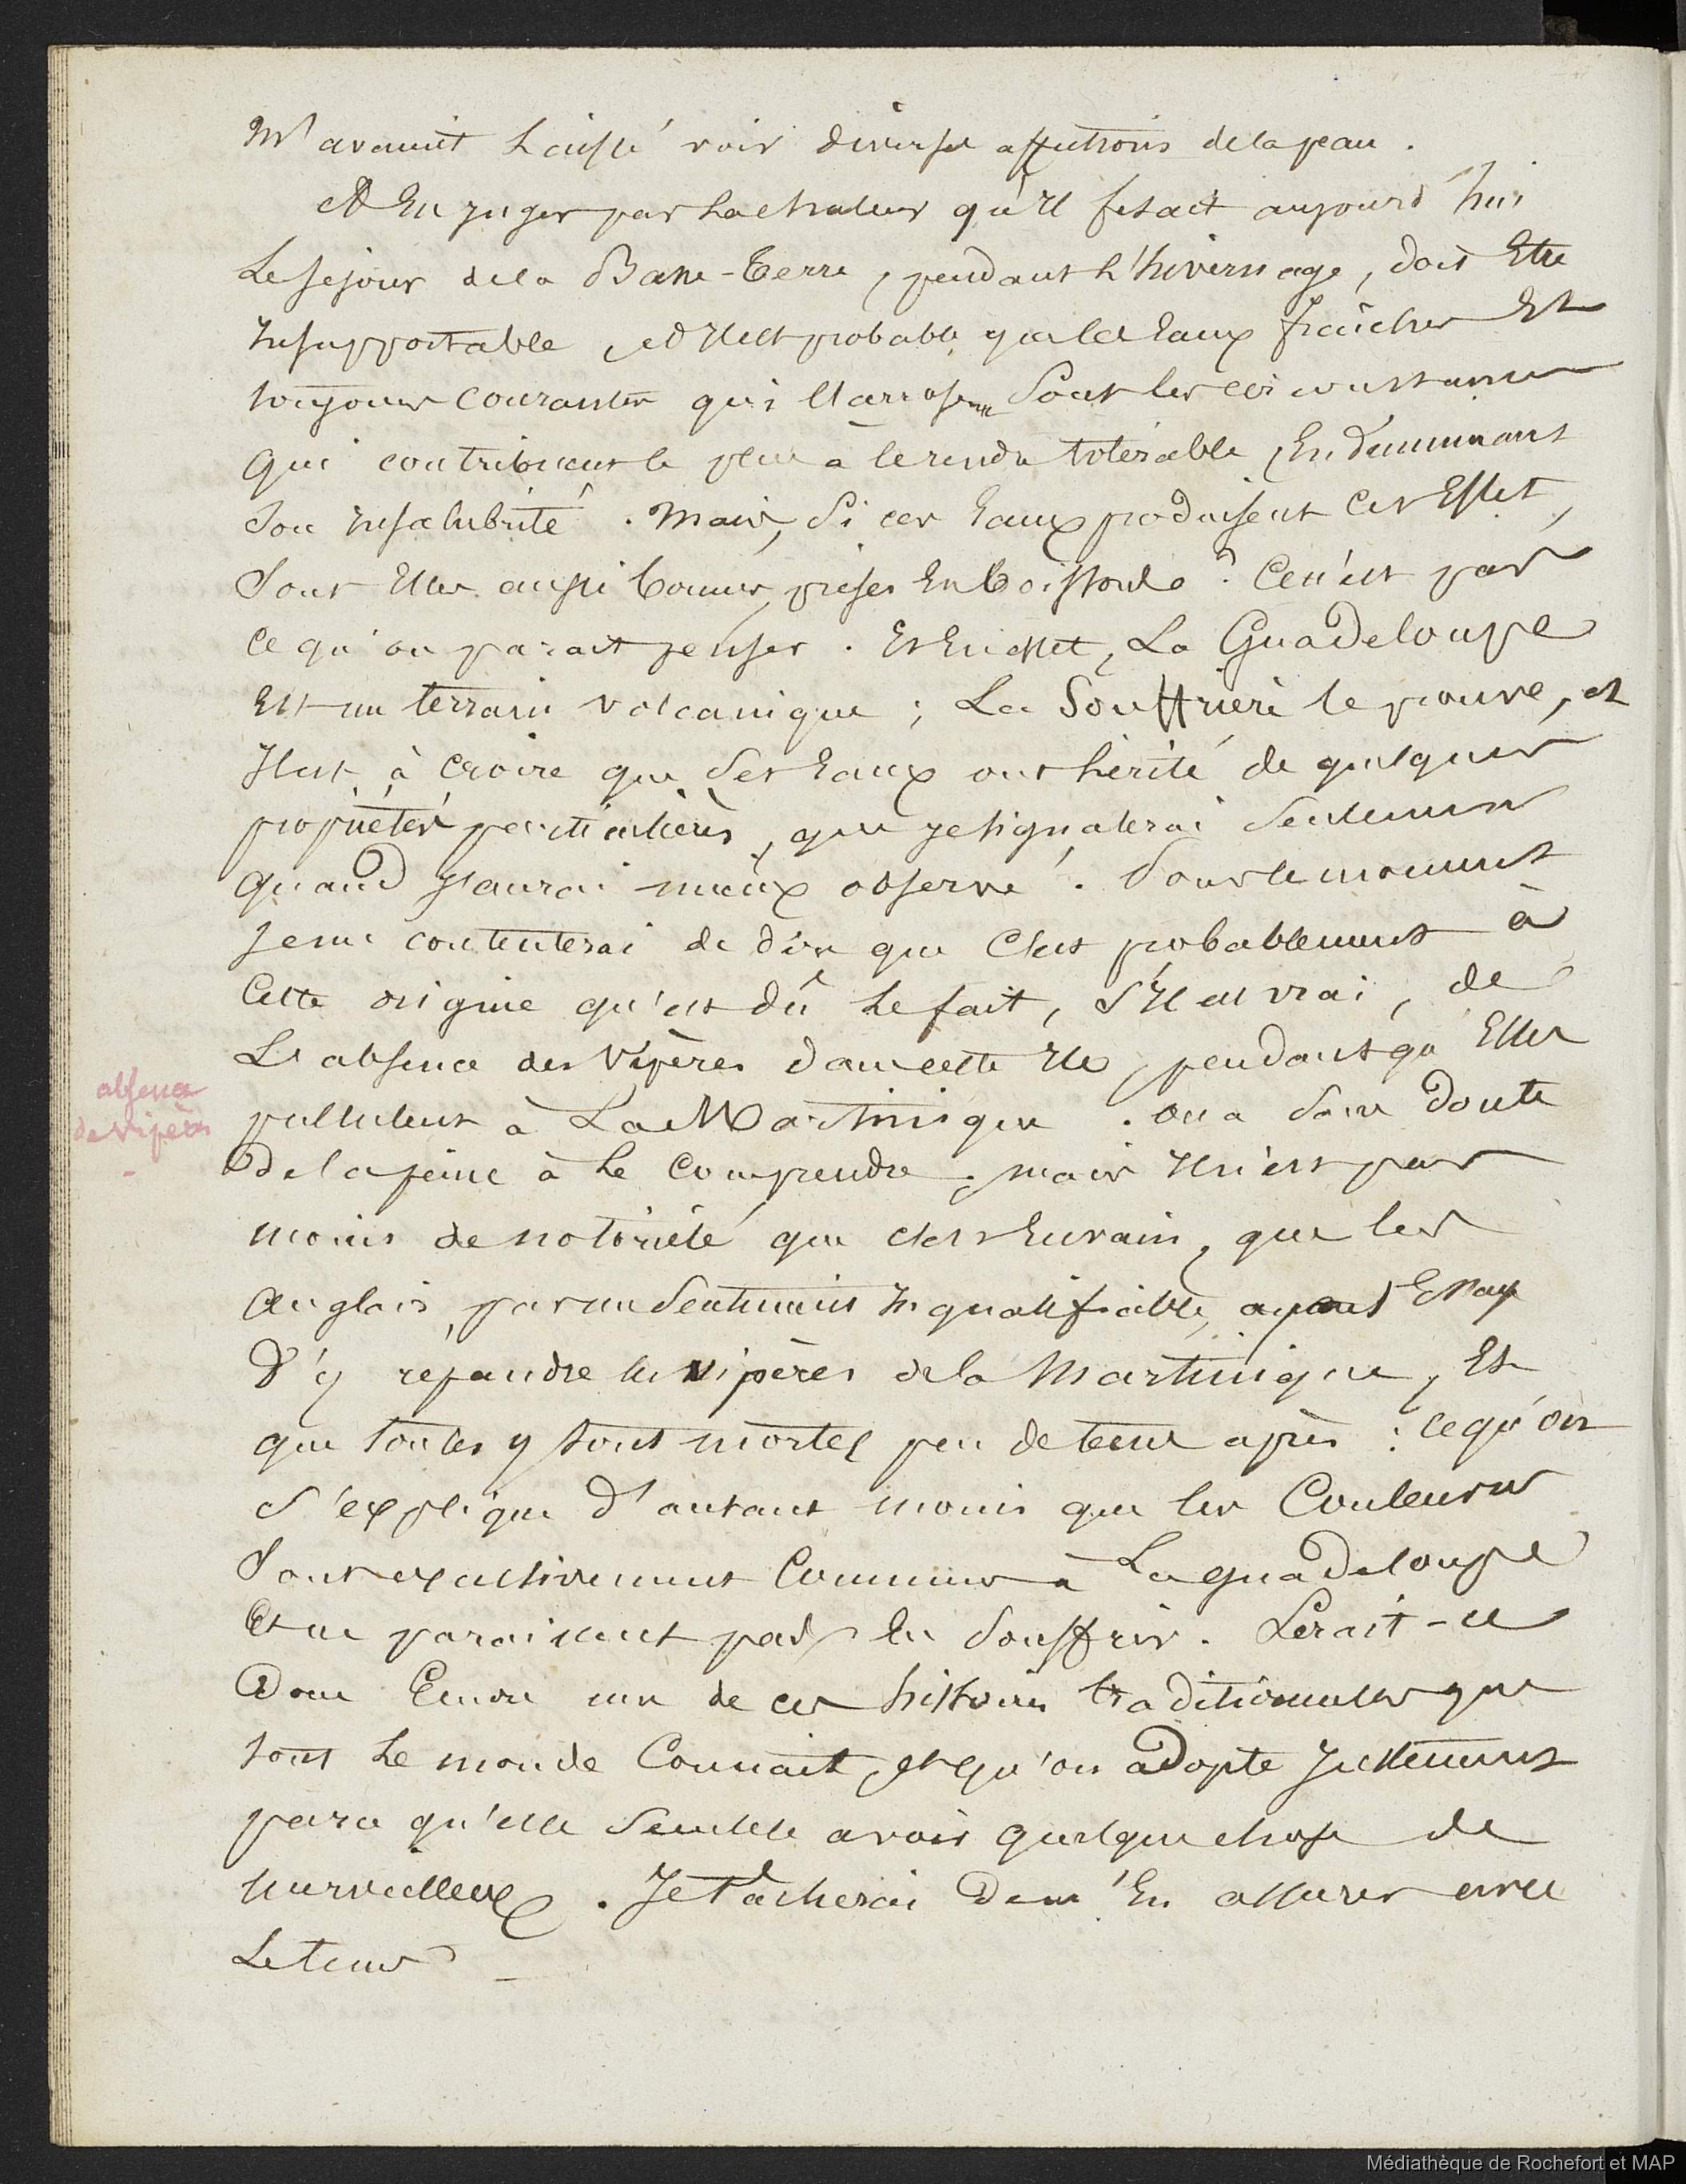 m'avaient laissé voir diverses affections de la peau.
A En juger par la chaleur qu'Il fesait aujourd'hui
Le séjour de la Basse-Terre, pendant l'hivernage, doit Etre
Insupportable, et Il est probable que les Eaux fraîches Et
toujours courantes qui l'arrosent sont les circonstances
qui contribuent le plus à le rendre tolérable, En diminuant
son insalubrité. Mais, Si ces Eaux produisent cet Effet,
sont Elles aussi bonnes, prises En boisson? Ce n'est pas
ce qu'on parait penser. Et En effet, La Guadeloupe
Est un terrain volcanique; La Souffrière le prouve, et
Il est à croire que ses Eaux ont hérité de quelques
propriétés particulières, que je signalerai seulement
quand J'aurai mieux observé. Pour le moment
Je me contenterai de dire que C'est probablement à
Cette origine qu'est dû le fait, s'Il est vrai, de
L'absence des Vipères dans cette Ile, pendant qu'Elles
pullulent à La Martinique. on a sans Doute
De la peine à le comprendre, mais Il n'est pas
moins de notoriété que c'est En vain, que les
Anglais, par un sentiment Inqualifiable, ayant Essayé
D'y répandre les vipères de la Martinique, Et
que toutes y sont mortes peu de tems après: ce qu'on
s'explique d'autant moins que les Couleuvres
sont excessivement Communes à La guadeloupe
Et ne paraissent pas En souffrir. Serait-ce
Donc Encore une de ces histoires traditionnelles que
tout le monde Connait, Et qu'on adopte Justement
parce qu'elle semble avoir quelque chose de
merveilleux. Je tâcherai De m'En assurer avec
Le tems
absence
de vipères
Médiathèque de Rochefort et MAP